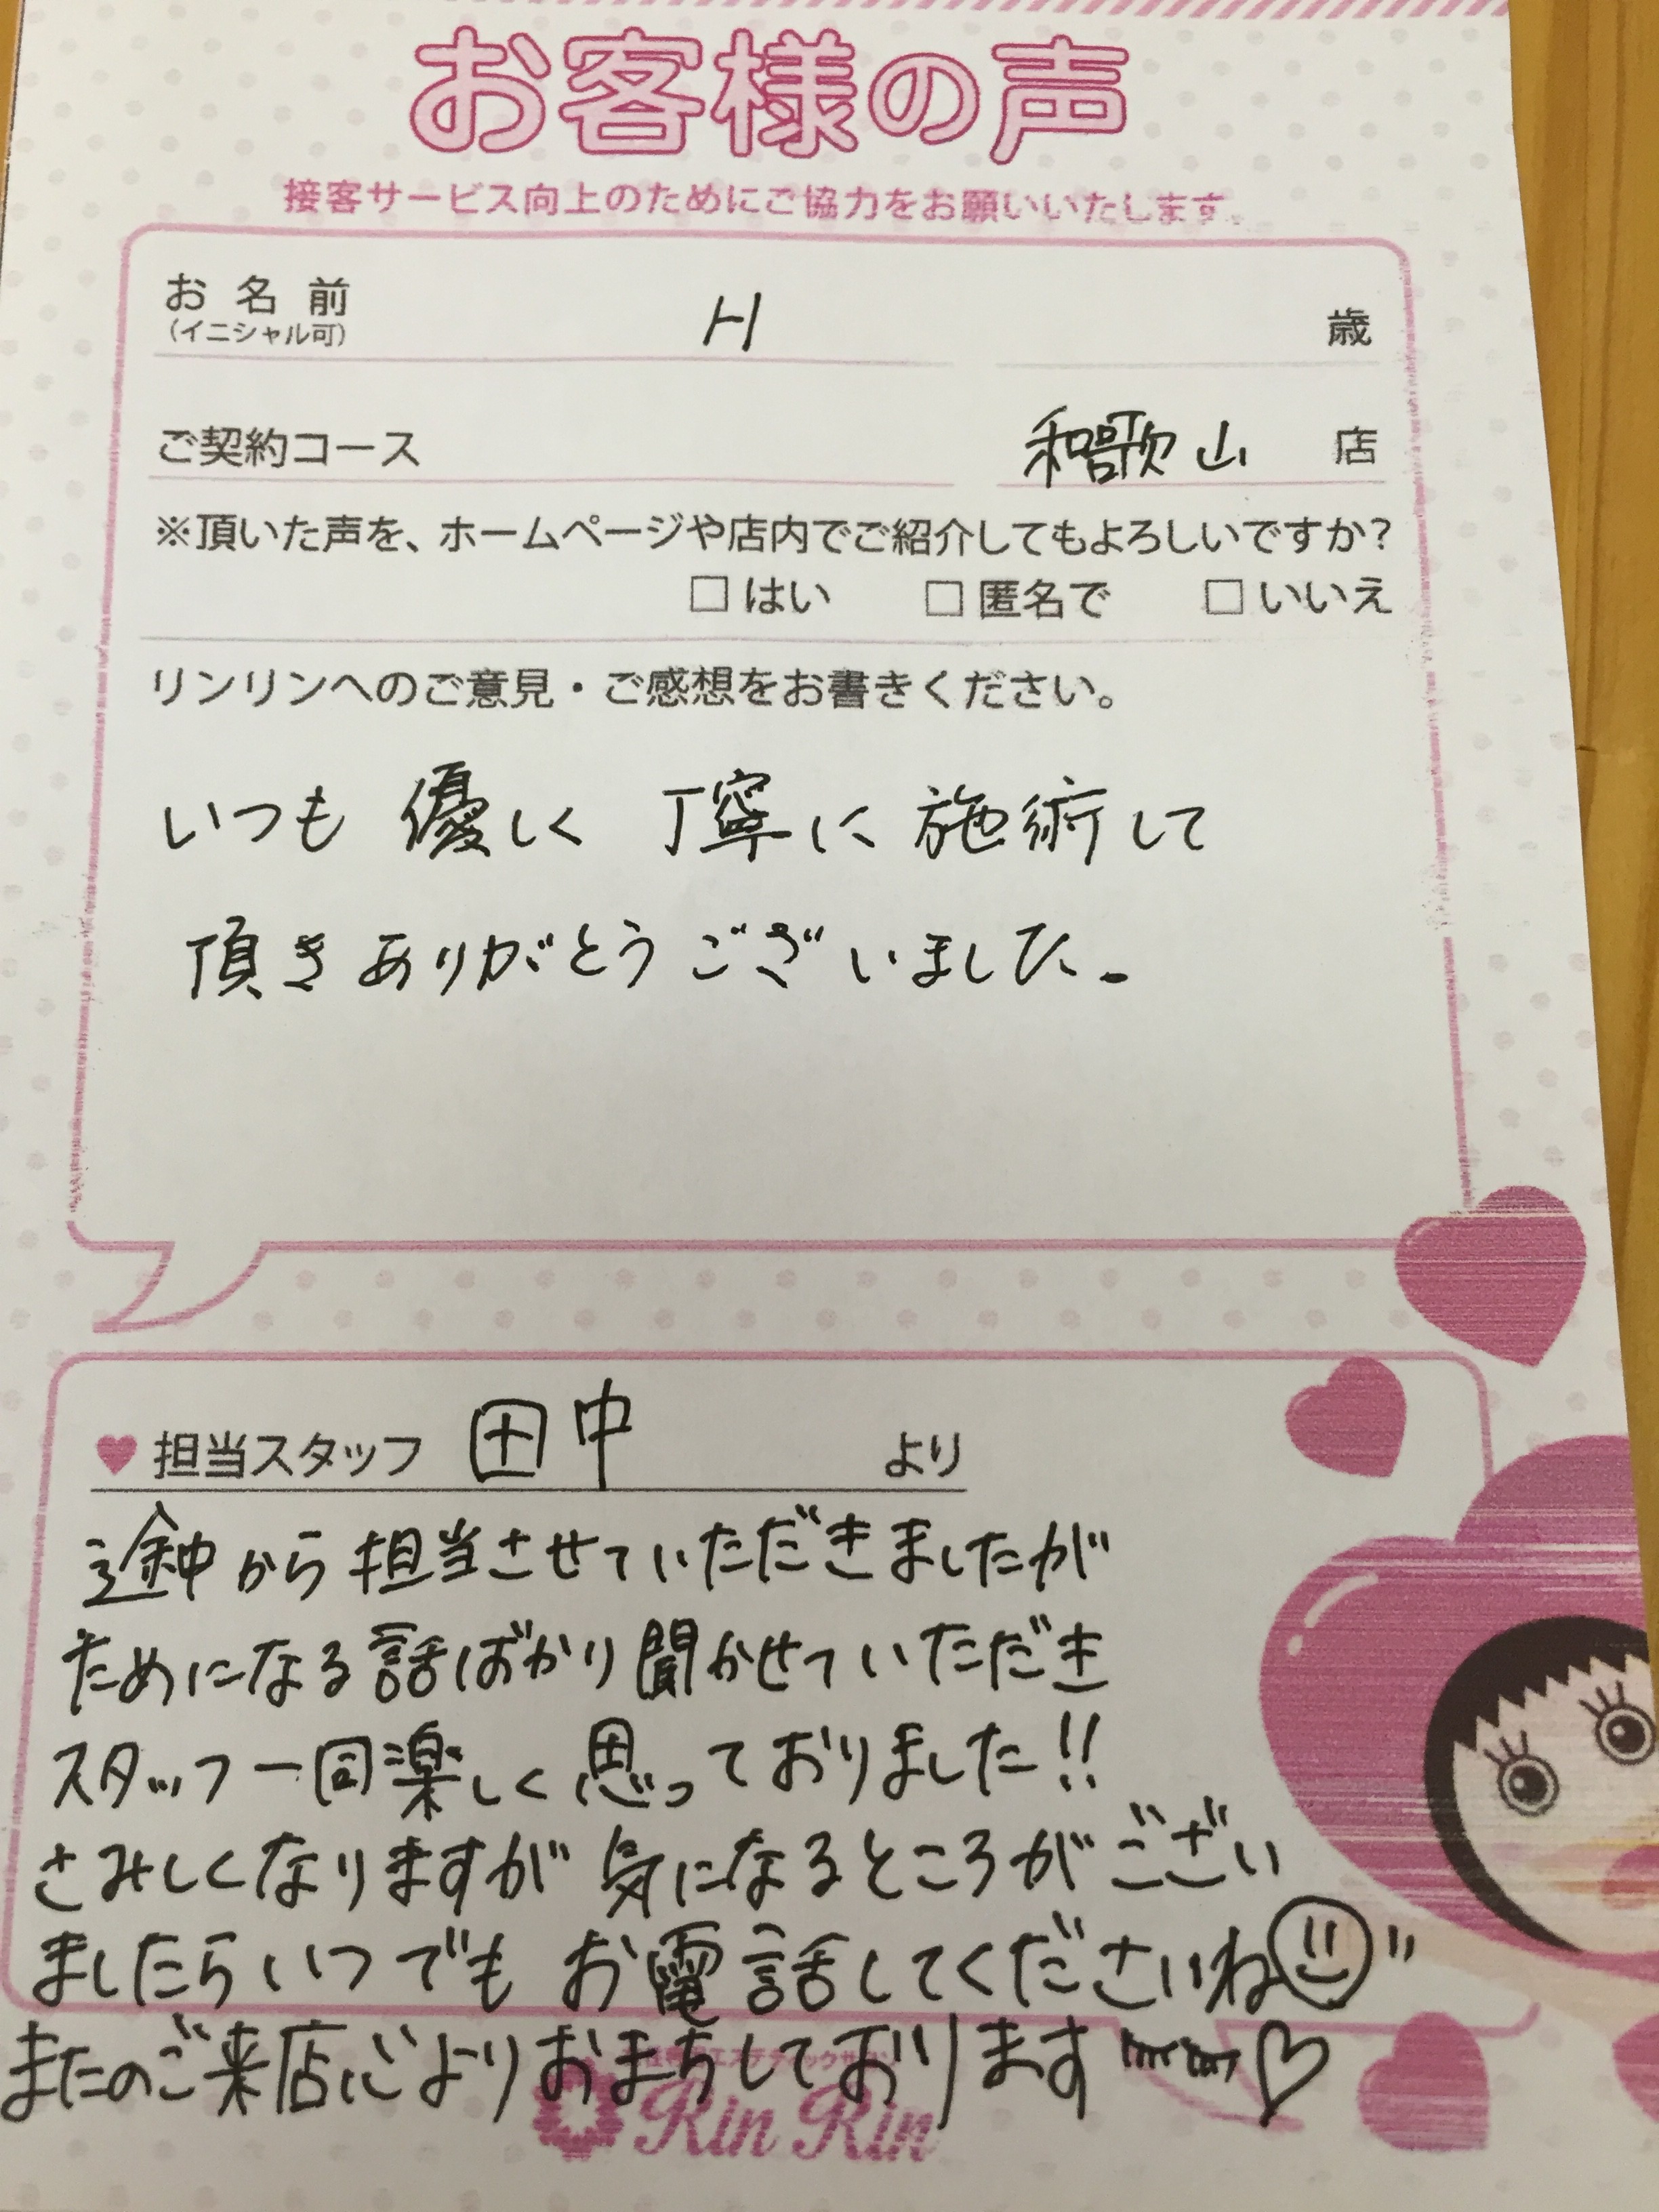 お客様の声
接客サービス向上のためにご協力をお願いいたします。
お名前 H 歳
(イニシャル可)
ご契約コース 和歌山 店
※頂いた声を、ホームページや店内でご紹介してもよろしいですか?
□はい □匿名で □いいえ
リンリンへのご意見・ご感想をお書きください。
いつも 優しく 丁寧に 施術して
頂き ありがとう ございました。
♥担当スタッフ 田中 より
途中から担当させていただきましたが
ためになる話ばかり聞かせていただき
スタッフ一同楽しく思っておりました!!
さみしくなりますが 気になるところがござい
ましたらいつでも お電話してくださいね
またのご来店心よりおまちしております♡
エステティックサロン
Rin Rin